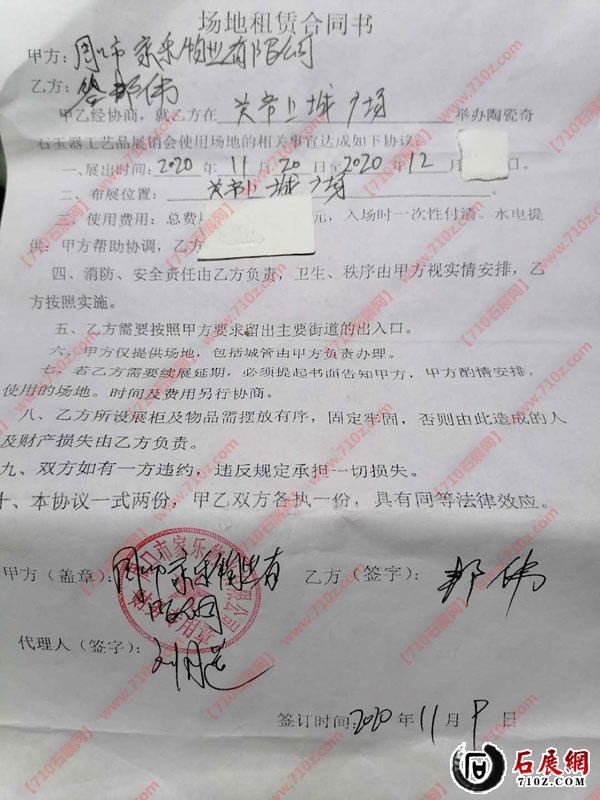 场地租赁合同书
甲方：周口市家乐物业有限公司
乙方：邦伟
甲乙经协商，就乙方在 关帝上城广场 举办陶瓷奇
石玉器工艺品展销会使用场地的相关事宜达成如下协议。
一、展出时间：2020年11月20日至2020年12月 日。
二、布展位置：关帝上城广场。
三、使用费用：总费 元，入场时一次性付清。水电提
供：甲方帮助协调，乙方
四、消防、安全责任由乙方负责，卫生、秩序由甲方视实情安排，乙
方按照实施。
五、乙方需要按照甲方要求留出主要街道的出入口。
六、甲方仅提供场地，包括城管由甲方负责办理。
七、若乙方需要续展延期，必须提起书面告知甲方，甲方酌情安排。
使用的场地。时间及费用另行协商。
八、乙方所设展柜及物品需摆放有序，固定牢固，否则由此造成的人
及财产损失由乙方负责。
九、双方如有一方违约，违反规定承担一切损失。
十、本协议一式两份，甲乙双方各执一份，具有同等法律效应。
甲方（盖章）：周口市家乐物业有限公司 乙方（签字）：邦伟
代理人（签字）：
签订时间：2020年11月9日
石展網
710Z.COM
【710石展网】www.710z.com